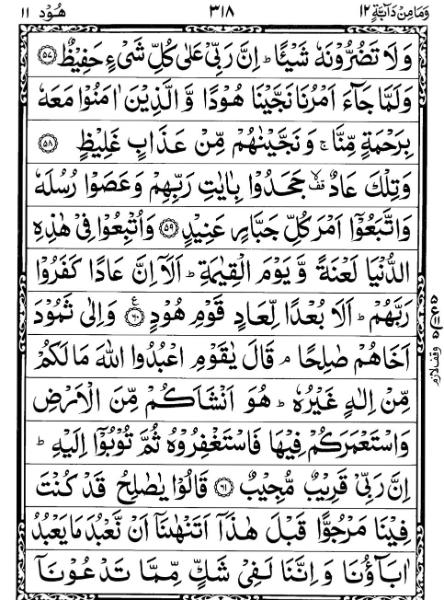 وَمَا مِنْ دَآبَّةٍ ١٢ ٣١٨ هُوْد ١١
وَلَا تَضُرُّوْنَهٗ شَيْـًٔا ؕ اِنَّ رَبِّيْ عَلٰى كُلِّ شَيْءٍ حَفِيْظٌ ﴿۵۷﴾
وَلَمَّا جَآءَ اَمْرُنَا نَجَّيْنَا هُوْدًا وَّ الَّذِيْنَ اٰمَنُوْا مَعَهٗ
بِرَحْمَةٍ مِّنَّا ۚ وَ نَجَّيْنٰهُمْ مِّنْ عَذَابٍ غَلِيْظٍ ﴿۵۸﴾
وَتِلْكَ عَادٌ ۙ۫ جَحَدُوْا بِاٰيٰتِ رَبِّهِمْ وَعَصَوْا رُسُلَهٗ
وَاتَّبَعُوْۤا اَمْرَ كُلِّ جَبَّارٍ عَنِيْدٍ ﴿۵۹﴾ وَاُتْبِعُوْا فِيْ هٰذِهِ
الدُّنْيَا لَعْنَةً وَّ يَوْمَ الْقِيٰمَةِ ؕ اَلَاۤ اِنَّ عَادًا كَفَرُوْا
رَبَّهُمْ ؕ اَلَا بُعْدًا لِّعَادٍ قَوْمِ هُوْدٍ ﴿۶۰﴾ ع وَاِلٰى ثَمُوْدَ
اَخَاهُمْ صٰلِحًا ۘ قَالَ يٰقَوْمِ اعْبُدُوا اللّٰهَ مَا لَكُمْ
مِّنْ اِلٰهٍ غَيْرُهٗ ؕ هُوَ اَنْشَاَكُمْ مِّنَ الْاَرْضِ
وَاسْتَعْمَرَكُمْ فِيْهَا فَاسْتَغْفِرُوْهُ ثُمَّ تُوْبُوْۤا اِلَيْهِ ؕ
اِنَّ رَبِّيْ قَرِيْبٌ مُّجِيْبٌ ﴿۶۱﴾ قَالُوْا يٰصٰلِحُ قَدْ كُنْتَ
فِيْنَا مَرْجُوًّا قَبْلَ هٰذَاۤ اَتَنْهٰىنَاۤ اَنْ نَّعْبُدَ مَا يَعْبُدُ
اٰبَآؤُنَا وَ اِنَّنَا لَفِيْ شَكٍّ مِّمَّا تَدْعُوْنَاۤ
وقف لازم